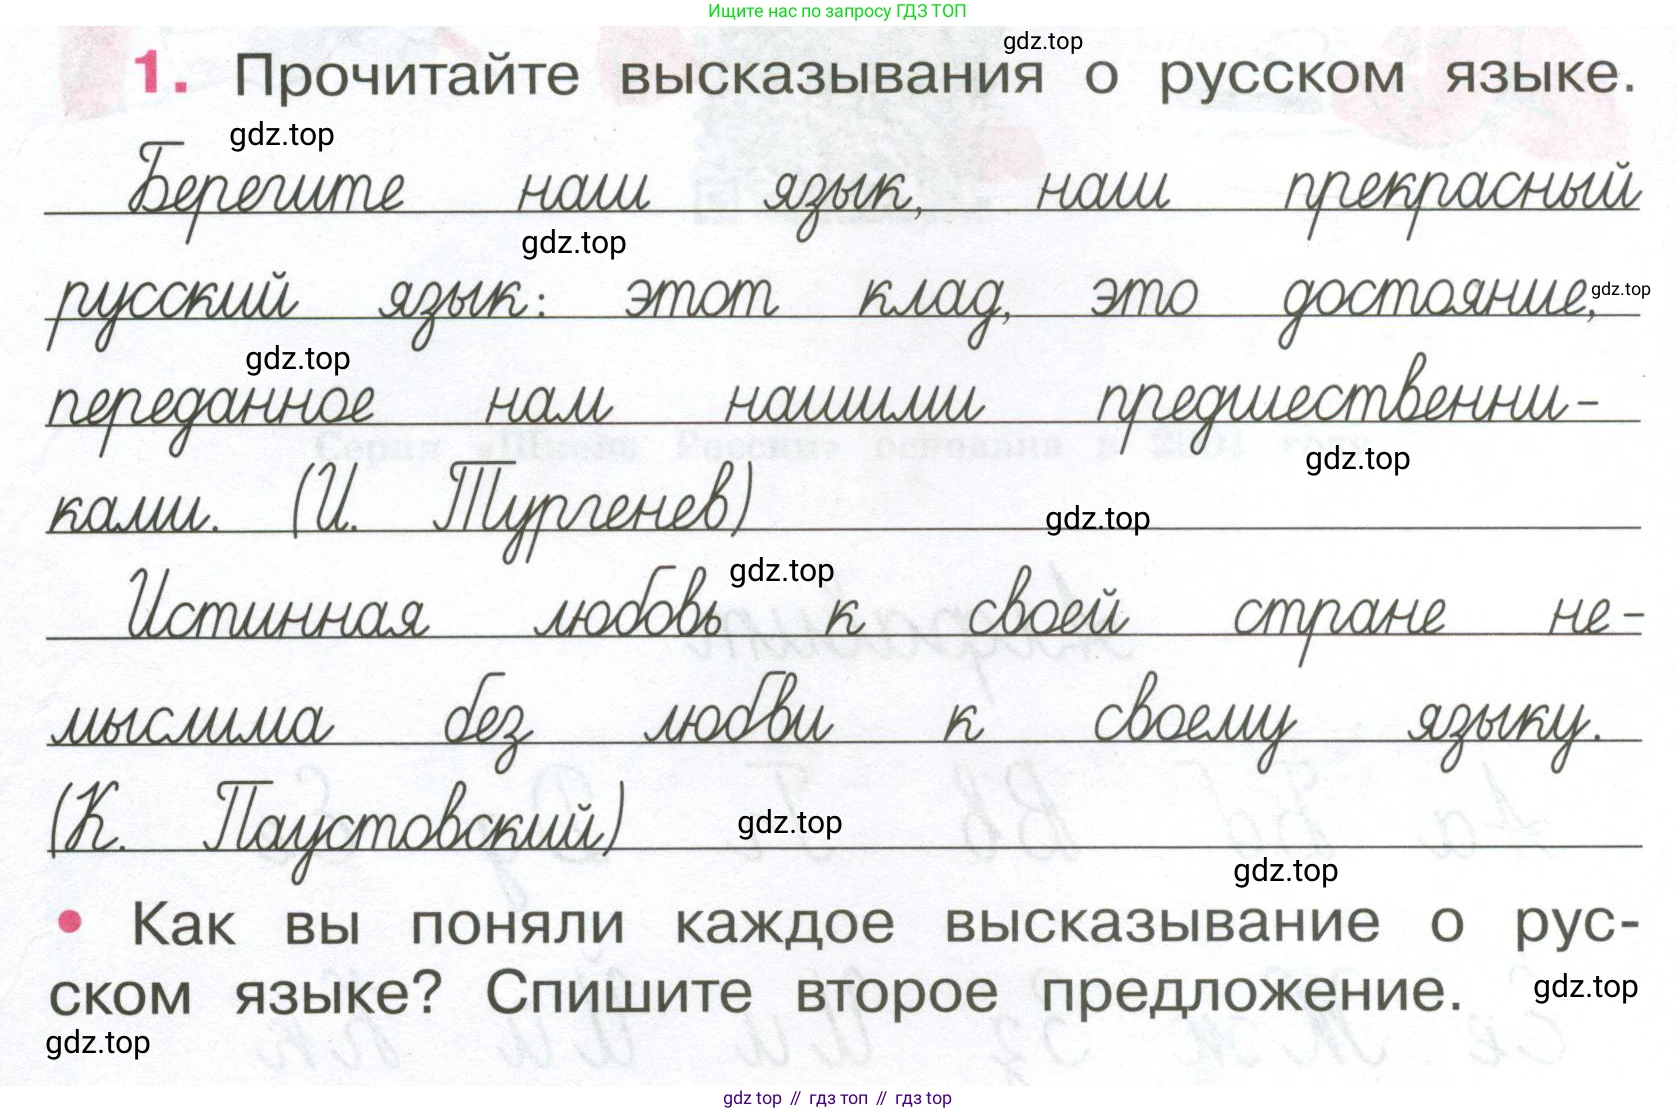 Ищите нас по запросу ГДЗ ТОП
gdz.top
1. Прочитайте высказывания о русском языке.
gdz.top
Берегите наш язык, наш прекрасный
gdz.top
русский язык: этот клад, это достояние,
gdz.top
gdz.top
переданное нам нашими предшественни-
gdz.top
ками. (И. Тургенев)
gdz.top
gdz.top
Истинная любовь к своей стране не-
мыслима без любви к своему языку.
(К. Паустовский)
gdz.top
gdz.top
• Как вы поняли каждое высказывание о рус-
ском языке? Спишите второе предложение.
gdz.top
gdz.top
gdz top // гдз топ // гдз top